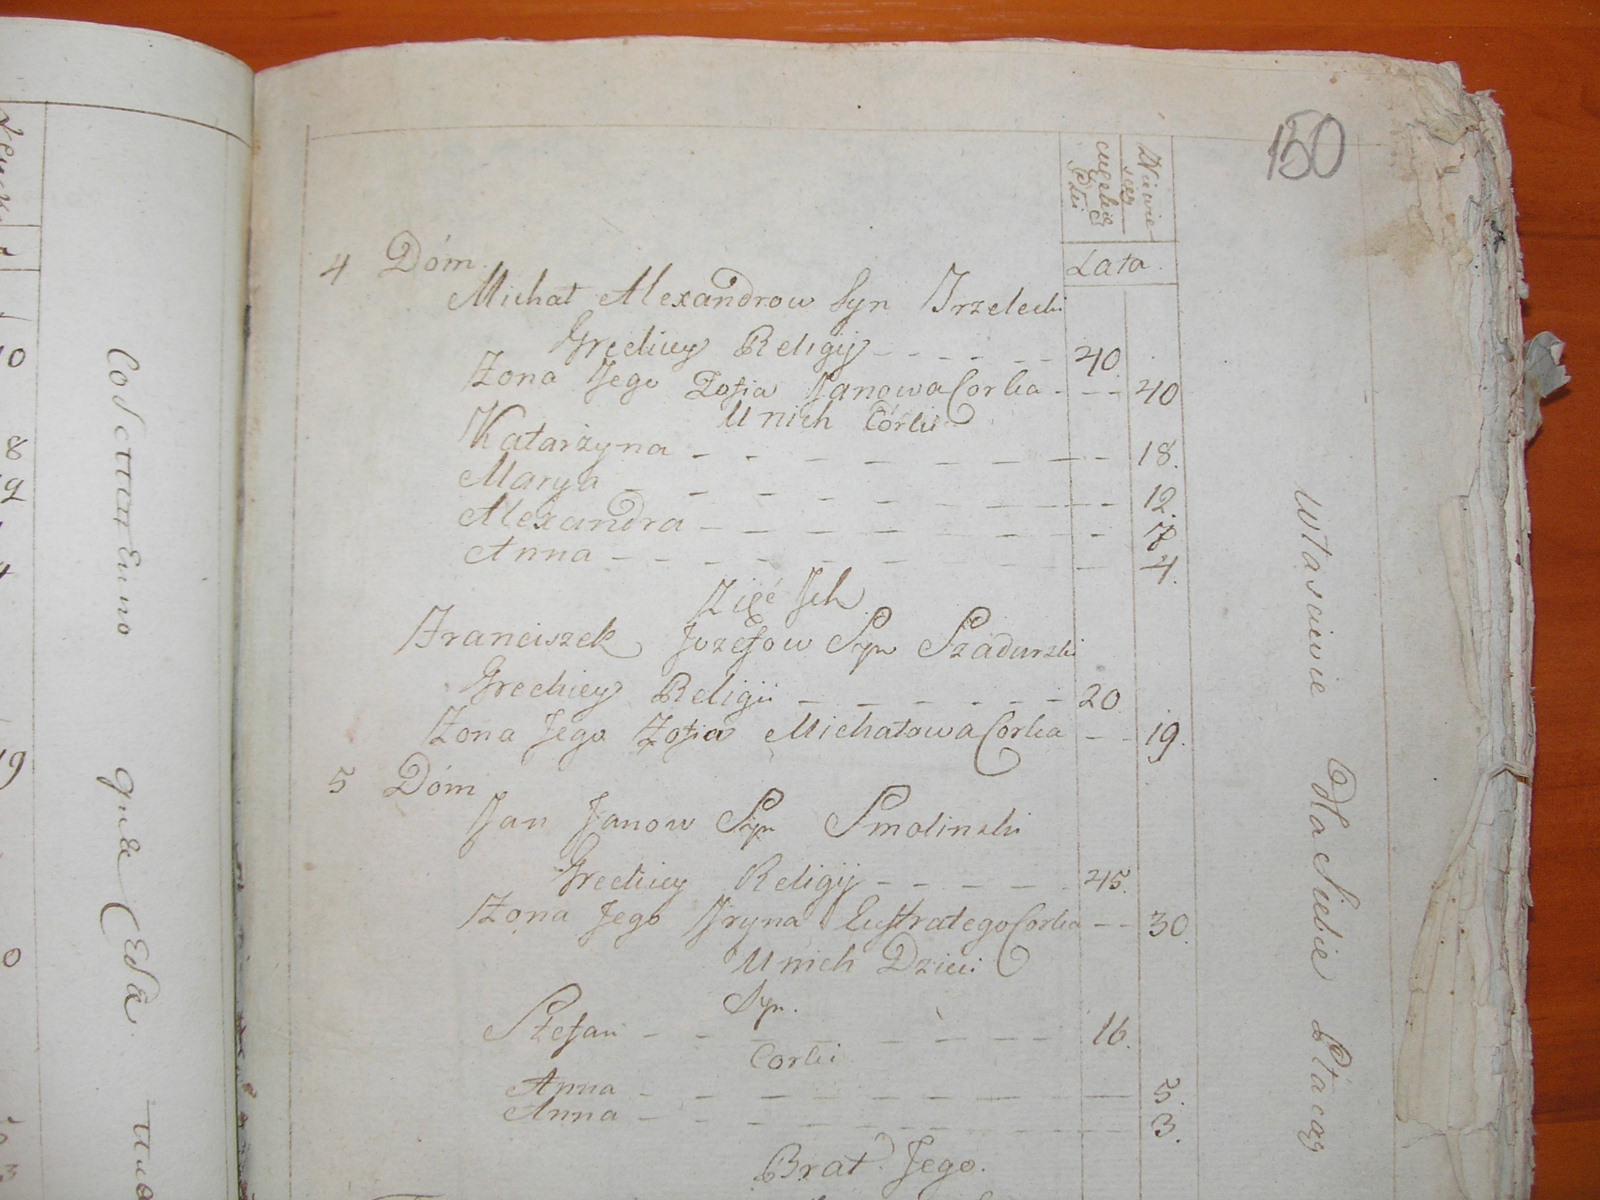 150
Lata
4 Dóm
Michał Alexandrow Syn
Greckiey Religij 40
Zona Jego Zofia Janowa Corka 40
U nich Córki
Katarzyna 18.
Marya 12.
Alexandra 7
Anna 4.
Zięć Ich
Franciszek Jozefow Syn Szadurski
Greckiey Religii 20
Zona Jego Zofia Michałowa Corka 19.
5 Dóm
Jan Janow Syn Smolinski
Greckiey Religij 45.
Zona Jego Iryna Eustratego Corka 30.
U nich Dzieci
Syn.
Stefan 16.
Corki
Anna 5.
Anna 3.
Brat Jego.
Własciwie Dla Siebie Płacą